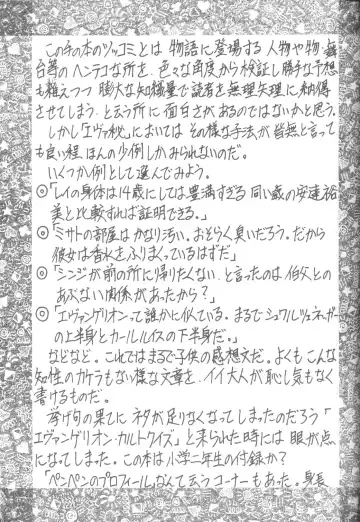 この手の本のツッコミとは 物語に登場する 人物や物・舞
台等のヘンテコな所を、色々な角度から検証し勝手な予想
も権えつつ 膨大な知識量で読者を無理矢理に納得
させてしまう、と云う所に 面白さがあるのではないかと思う。
しかし「エヴァ秘」においては その様な手法が 皆無と言って
も良い程 ほんの少例しかみられないのだ。
いくつか例として選んでみよう。
◎「レイの身体は14歳にしては豊満すぎる 同い歳の安達祐
実と比較すれば証明できる。」
◎「ミサトの部屋はかなり汚い。おそらく臭いだろう。だから
彼女は香水をふりまくっているはずだ」
◎「シンジが前の所に帰りたくない、と言ったのは 伯父との
あぶない関係があったから?」
◎「エヴァンゲリオンって誰かに似ている。まるでシュワルツェネッガー
の上半身とカールルイスの下半身だ。」
などなど。これではまるで子供の感想文だ。よくもこんな
知性のカケラもない様な文章を、イイ大人が恥し気もなく
書けるものだ。
挙げ句の果てに ネタが足りなくなってしまったのだろう「
エヴァンゲリオン・カルトクイズ」と来られた時には 眼が点
になってしまった。この本は小学二年生の付録か?
「ペンペンのプロフィール」なんて云うコーナーもあった。身長